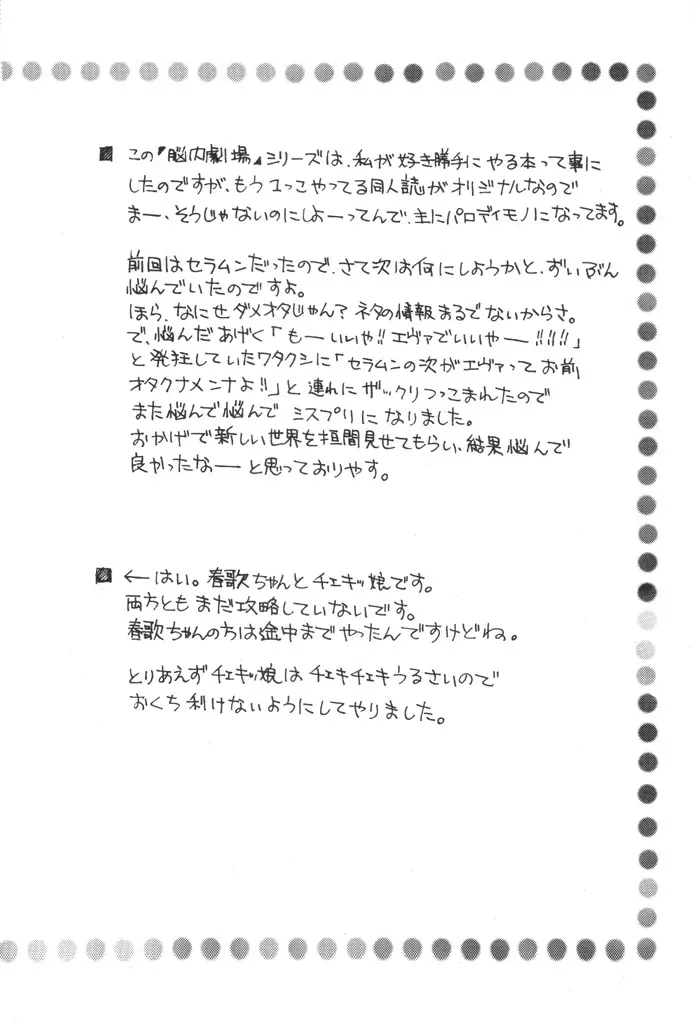 ■ この『脳内劇場』シリーズは、私が好き勝手にやる本って事に
したのですが、もう1つやってる同人誌がオリジナルなので
まー、そうじゃないのにしよーってんで、主にパロディモノになってます。
前回はセラムンだったので、さて次は何にしようかと、ずいぶん
悩んでいたのですよ。
ほら、なにせダメオタじゃん？ネタの情報まるでないからさ。
で、悩んだあげく「もーいいや!!エヴァでいいやー!!!!」
と発狂していたワタクシに「セラムンの次がエヴァってお前
オタクナメンナよ!!」と連れにザックリつっこまれたので
また悩んで悩んで ミスプリになりました。
おかげで新しい世界を垣間見せてもらい、結果悩んで
良かったなーと思っておりやす。
■ ←はい。春歌ちゃんとチェキッ娘です。
両方ともまだ攻略していないです。
春歌ちゃんの方は途中までやったんですけどね。
とりあえずチェキッ娘はチェキチェキうるさいので
おくち利けないようにしてやりました。